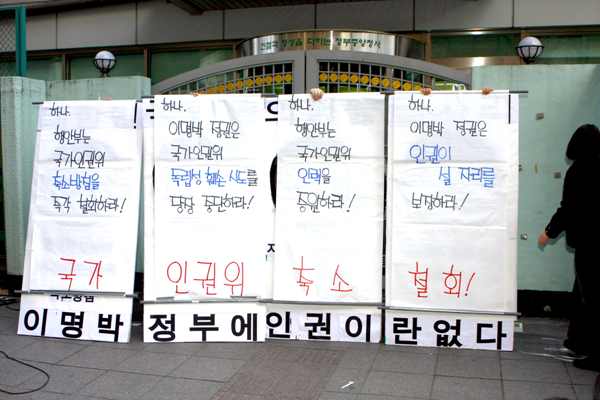 정부중앙청사
하나.
행안부는
국가인권위
축소방침을
즉각 철회하라!
국가
하나.
이명박 정권은
국가인권위
독립성 훼손 시도를
당장 중단하라!
인권위
하나.
행안부는
국가인권위
인력을
증원하라!
축소
하나.
이명박 정권은
인권이
설 자리를
보장하라!
철회!
이명박 정부에 인권이란 없다